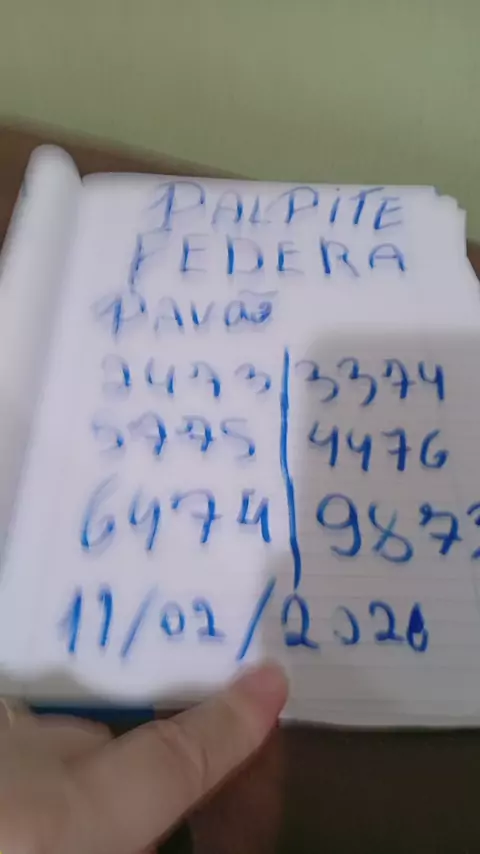 PALPITE
FEDERA
PAVÃO
2473 | 3374
5775 | 4476
6474 | 9873
11/02/2026